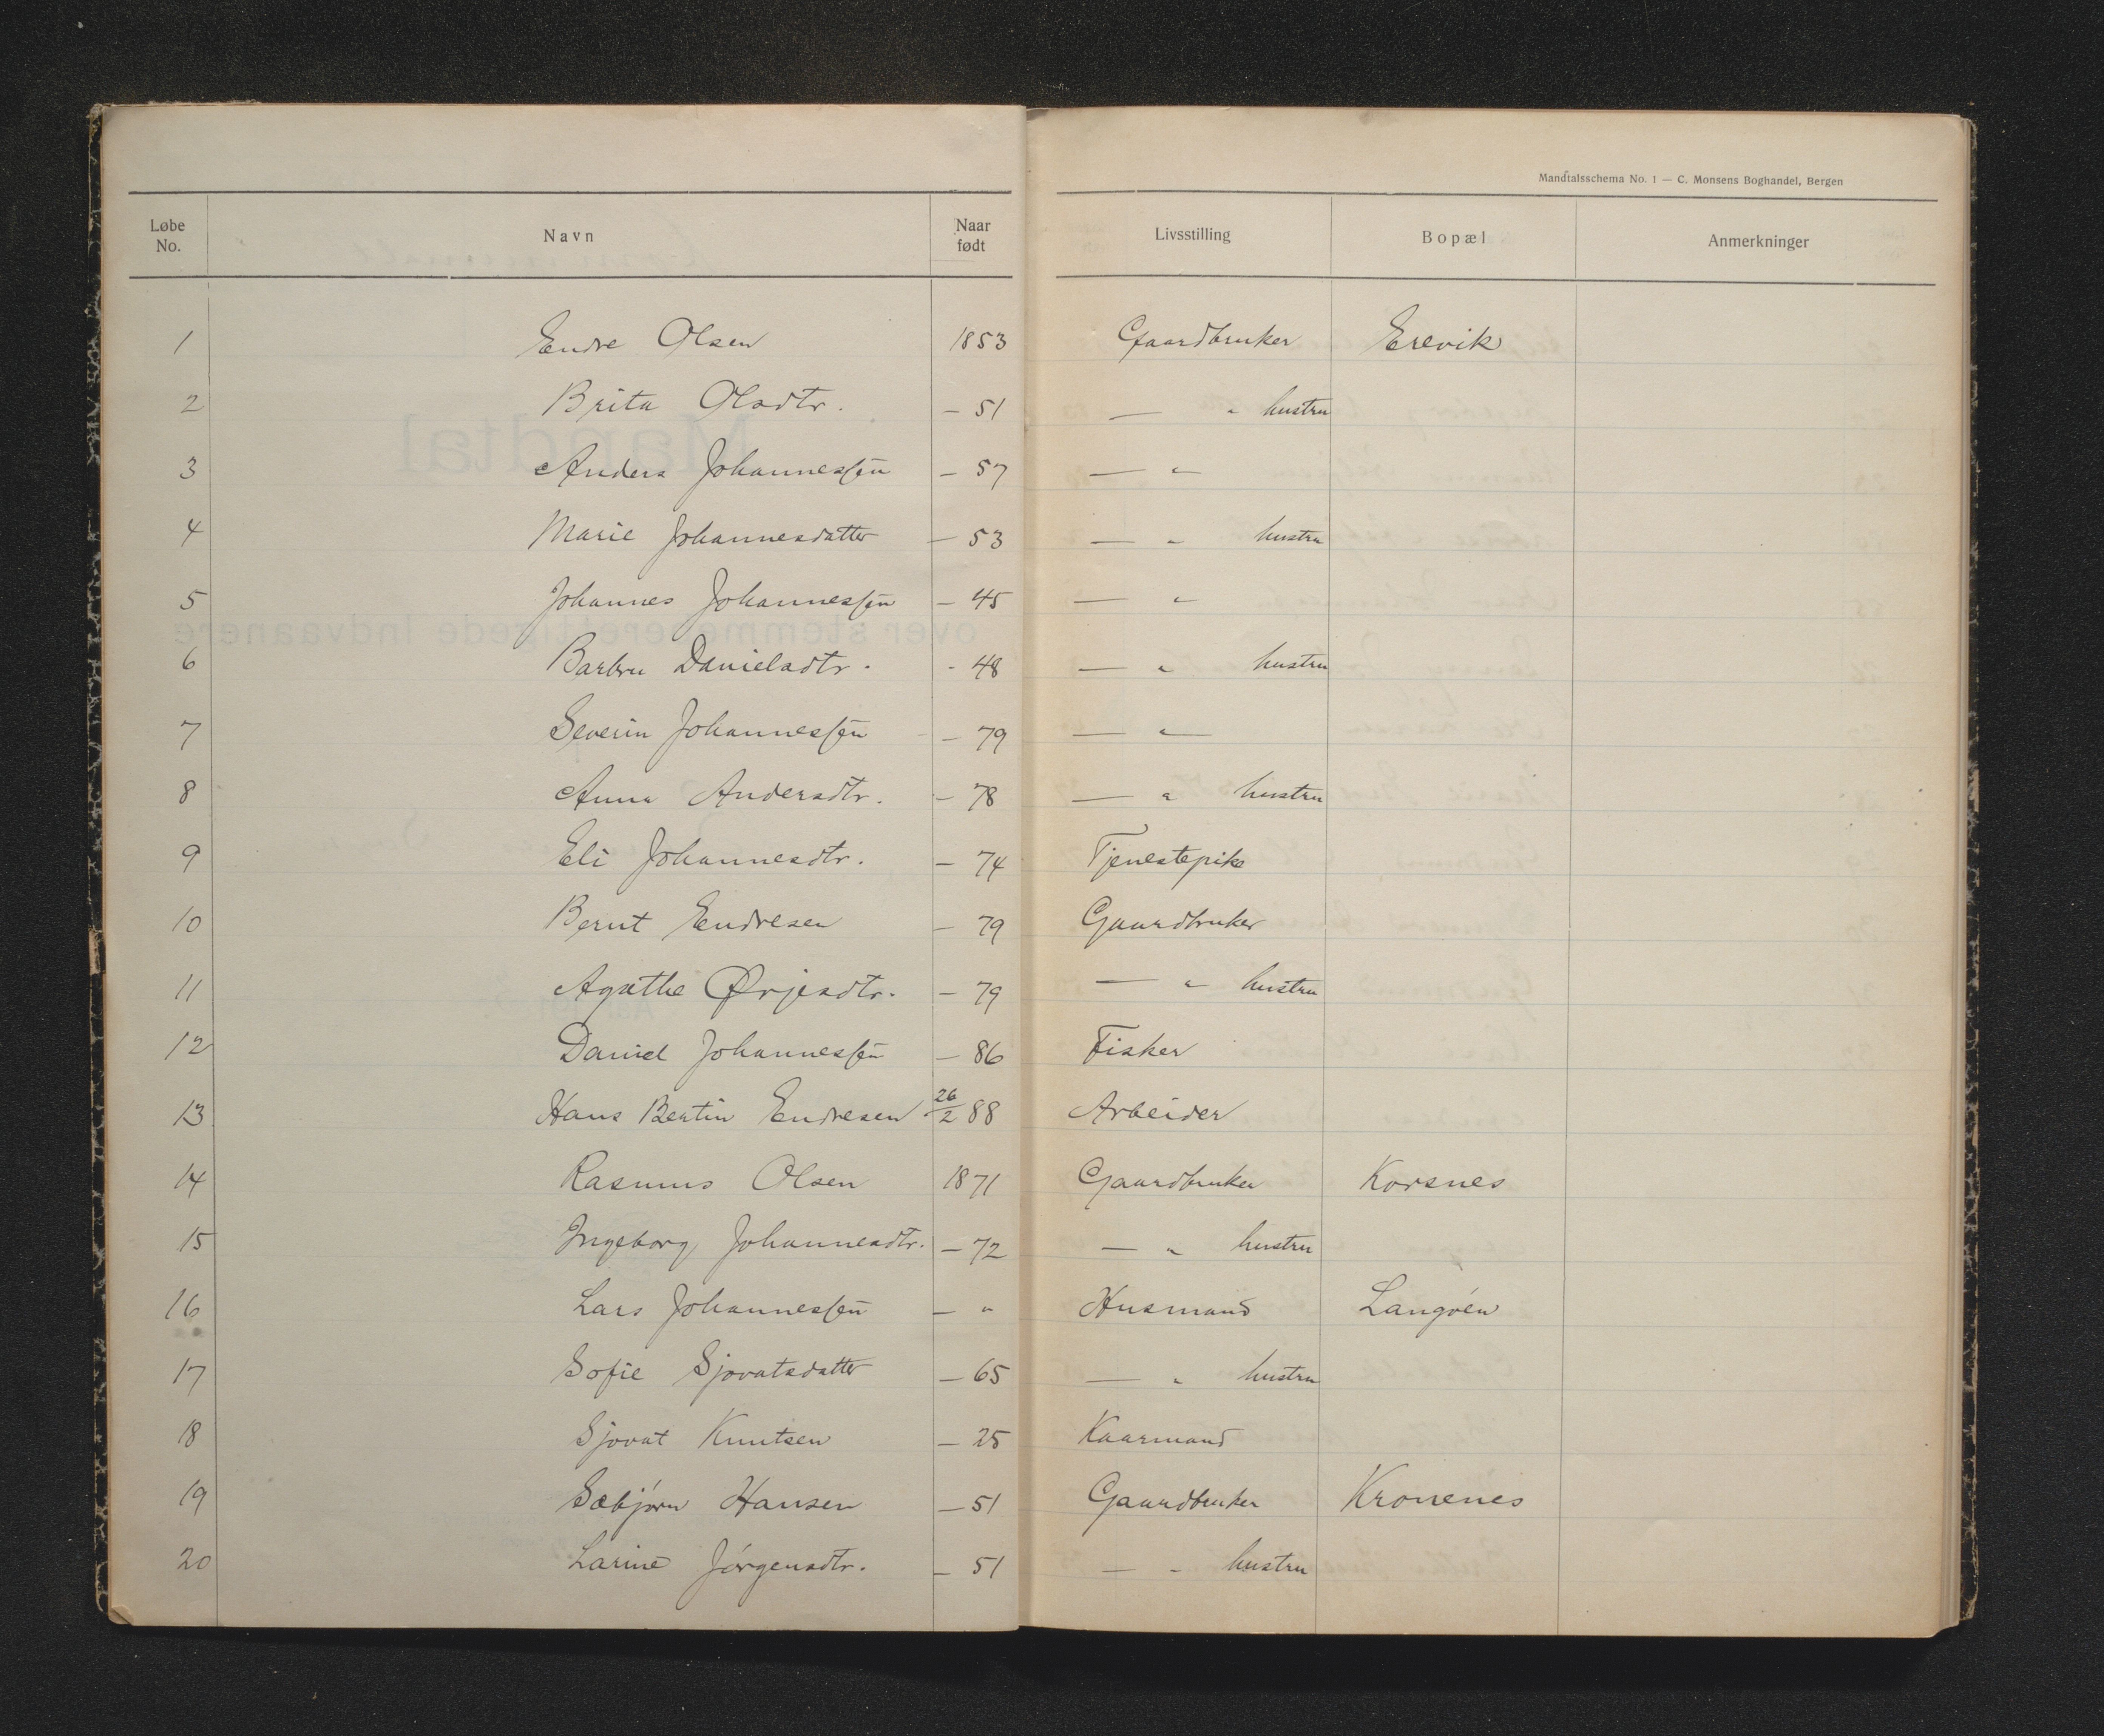 Mandtalsschema No. 1 — C. Monsens Boghandel, Bergen
Løbe No. Navn Naar født Livsstilling Bopæl Anmerkninger
1 Endre Olsen 1853 Gaardbruker Erevik
2 Brita Olsdtr. — 51 — " hustru
3 Anders Johannessen — 57 — "
4 Marie Johannesdatter — 53 — " hustru
5 Johannes Johannessen — 45 — "
6 Barbru Danielsdtr. - 48 — " hustru
7 Severin Johannessen — 79 — " —
8 Anna Andersdtr. — 78 — " hustru
9 Eli Johannesdtr. — 74 Tjenestepike
10 Bernt Endresen — 79 Gaardbruker
11 Agathe Ørjesdtr. — 79 — " hustru
12 Daniel Johannessen — 86 Fisker
13 Hans Bertin Endresen 26/2 88 Arbeider
14 Rasmus Olsen 1871 Gaardbruker Korsnes
15 Ingeborg Johannesdtr. — 72 — " hustru
16 Lars Johannessen — " Husmand Langøen
17 Sofie Sjovatsdatter — 65 — " hustru
18 Sjovat Knutsen — 25 Kaarmand
19 Sæbjørn Hansen — 51 Gaardbruker Kronenes
20 Larine Jørgensdtr. — 51 — " hustru